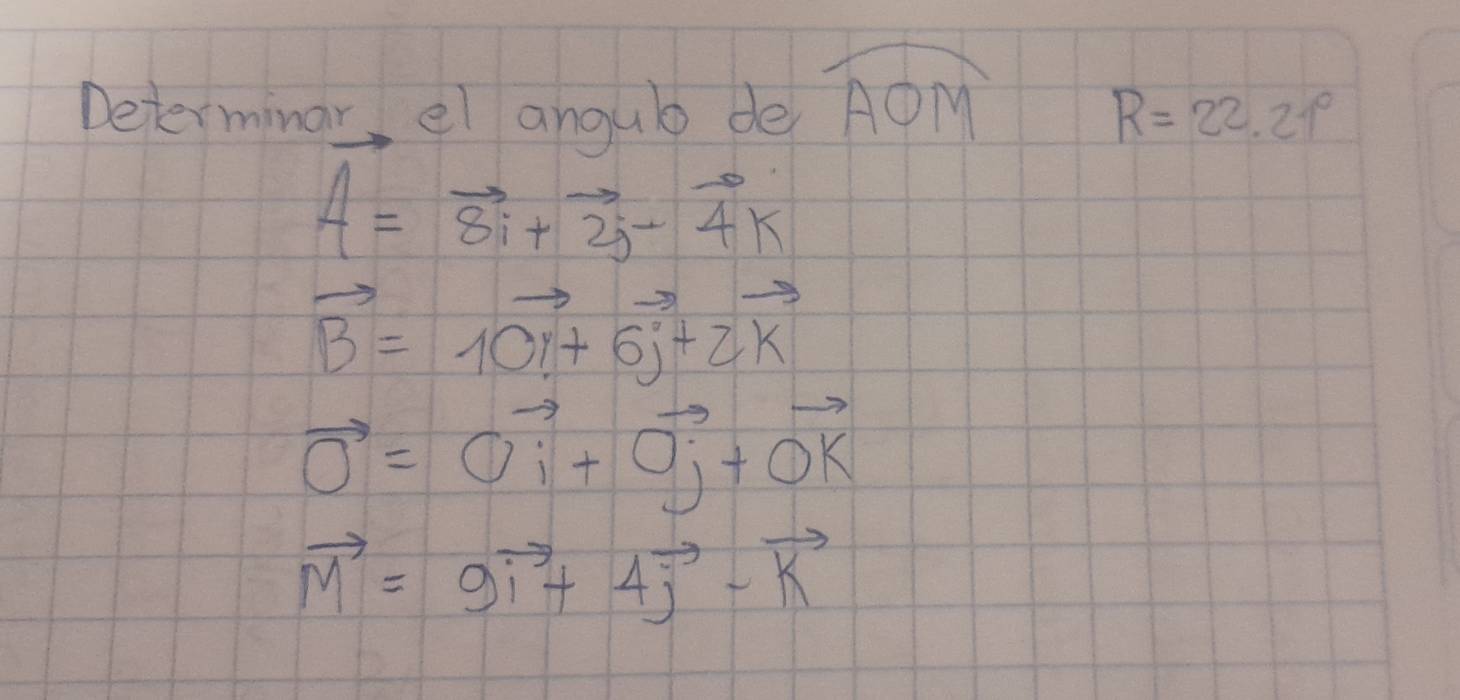 Determinar el angulo de AOM R= 22.21°
A = 8i + 2j - 4K
B = 10i + 6j + 2K
O = 0i + 0j + 0K
M = 9i + 4j - K